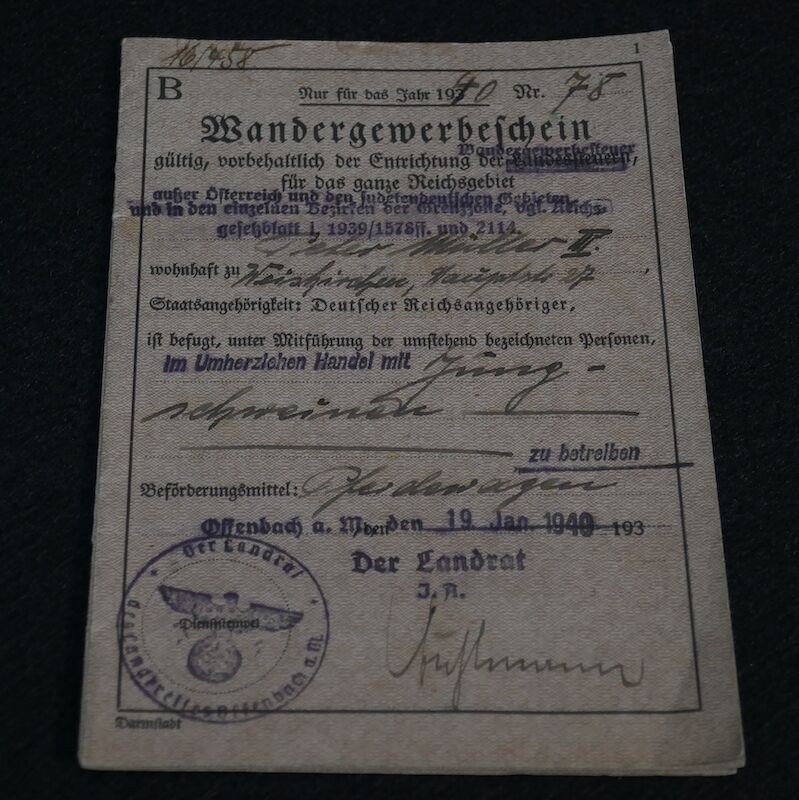 16/458
1
B
Nur für das Jahr 1940 Nr. 78
Wandergewerbeschein
Wandergewerbesteuer
gültig, vorbehaltlich der Entrichtung der Landessteuern,
für das ganze Reichsgebiet
außer Österreich und den sudetendeutschen Gebieten
und in den einzelnen Bezirken der Grenzzone, vgl. Reichs-
gesetzblatt I, 1939/1578ff. und 2114.
Müller II.
wohnhaft zu Weiskirchen, Hauptstr 27,
Staatsangehörigkeit: Deutscher Reichsangehöriger,
ist befugt, unter Mitführung der umstehend bezeichneten Personen,
im Umherziehen Handel mit Jung-
schweinen
zu betreiben
Beförderungsmittel: Pferdewagen
Offenbach a. M., den den 19. Jan. 1940 193
Der Landrat
J. A.
Der Landrat
Dienststempel
des Landkreises Offenbach a.M.
Darmstadt